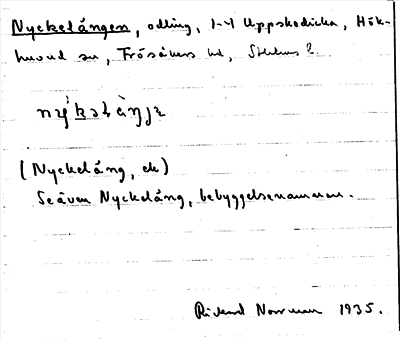 Nyckelängen, odling, 1-4 Uppskedicka, Hök-
huvud sn, Frösåkers hd,
(Nyckeläng, ek)
Se även Nyckeläng, bebyggelsenamnen.
Rickard Norrman 1935.